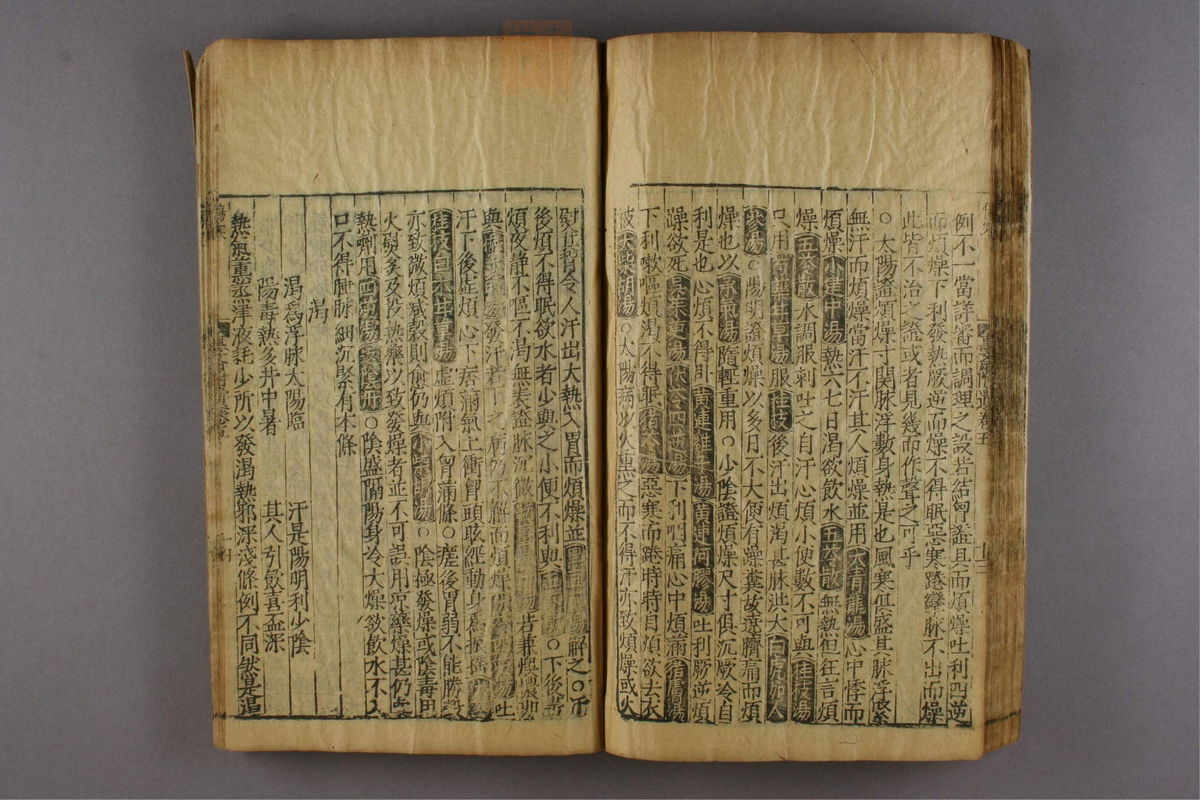 例不一當詳審而調理之設若結胸證具而煩燥吐利四逆
而煩燥下利發熱厥逆而燥不得眠惡寒踡臥脉不出而燥
此皆不治之證或者見幾而作聲之可乎
○太陽證煩燥寸関脉浮數身熱是也風寒俱盛其脉浮緊
無汗而煩燥當汗不汗其人煩燥並用大青龍湯心中悸而
煩燥小建中湯熱六七日渴欲飲水五苓散無熱但狂言煩
燥五苓散水調服刺吐之自汗心煩小便數不可與桂枝湯
只用芍藥甘草湯服桂枝後汗出煩渴甚脉洪大白虎加人
參湯○陽明證煩燥以多日不大便有燥糞故遶臍痛而煩
燥也以承氣湯隨輕重用○少陰證煩燥尺寸俱沉厥冷自
利是也心煩不得卧黄連雞子湯黄連阿膠湯吐利厥逆煩
躁欲死吳茱萸湯 四逆湯下利咽痛心中煩滿猪膚湯
下利嗽嘔煩渴不得眠猪苓湯惡寒而踡時時自煩欲去衣
被大柴胡湯○太陽病以火熏之而不得汗亦致煩燥或火
熨其背令人汗出大熱入胃而煩燥並 湯解之○汗
後煩不得眠欲水者少與之小便不利與五苓散○下後
煩夜静不嘔不渴無表證脉沉微 吐
與 發汗若下之病仍不解而煩燥
汗下後虚煩心下痞滿氣上衝胷頭眩經動身為振摇
桂枝白术甘草湯虚煩附入胷滿條○瘥後胃弱不能勝穀
亦致微煩减穀則愈仍與小柴胡湯○陰極發燥或陰毒用
火熨灸及投熱藥以致發燥者並不可誤用凉藥燥甚仍
熱劑用四逆湯 ○陰盛隔陽身冷大燥欲飲水不入
口不得脉細沉緊有本條
渴
渴爲浮脉太陽臨 汗是陽明利少陰
陽毒熱多并中暑 其人引飲喜盃深
熱氣熏蒸津液耗少所以發渴熱邪深淺條例不同然是渴